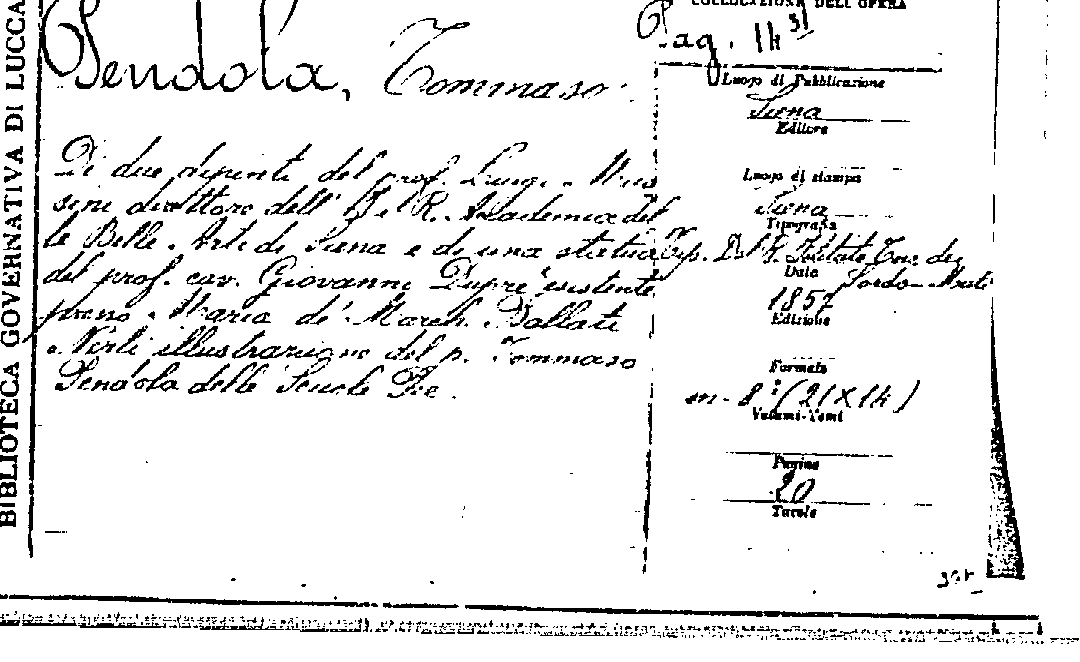 BIBLIOTECA GOVERNATIVA DI LUCCA
Pendola, Tommaso
Di due dipinti del prof. Luigi Mus
sini direttore dell' I. e R. Accademia del
le Belle Arti di Siena e di una statua
del prof. cav. Giovanni Duprè esistente
presso Maria de' March. Ballati
Nerli illustrazione del p. Tommaso
Pendola delle Scuole Pie.
COLLOCAZIONE DELL'OPERA
Pag. 14
Luogo di Pubblicazione
Siena
Editore
Luogo di stampa
Siena
Tipografia
Tip. Dell' I. Istituto Tos. dei
Sordo-Muti
Data
1857
Edizione
Formato
in-8° (21X14)
Volumi-Tomi
Pagine
20
Tavole